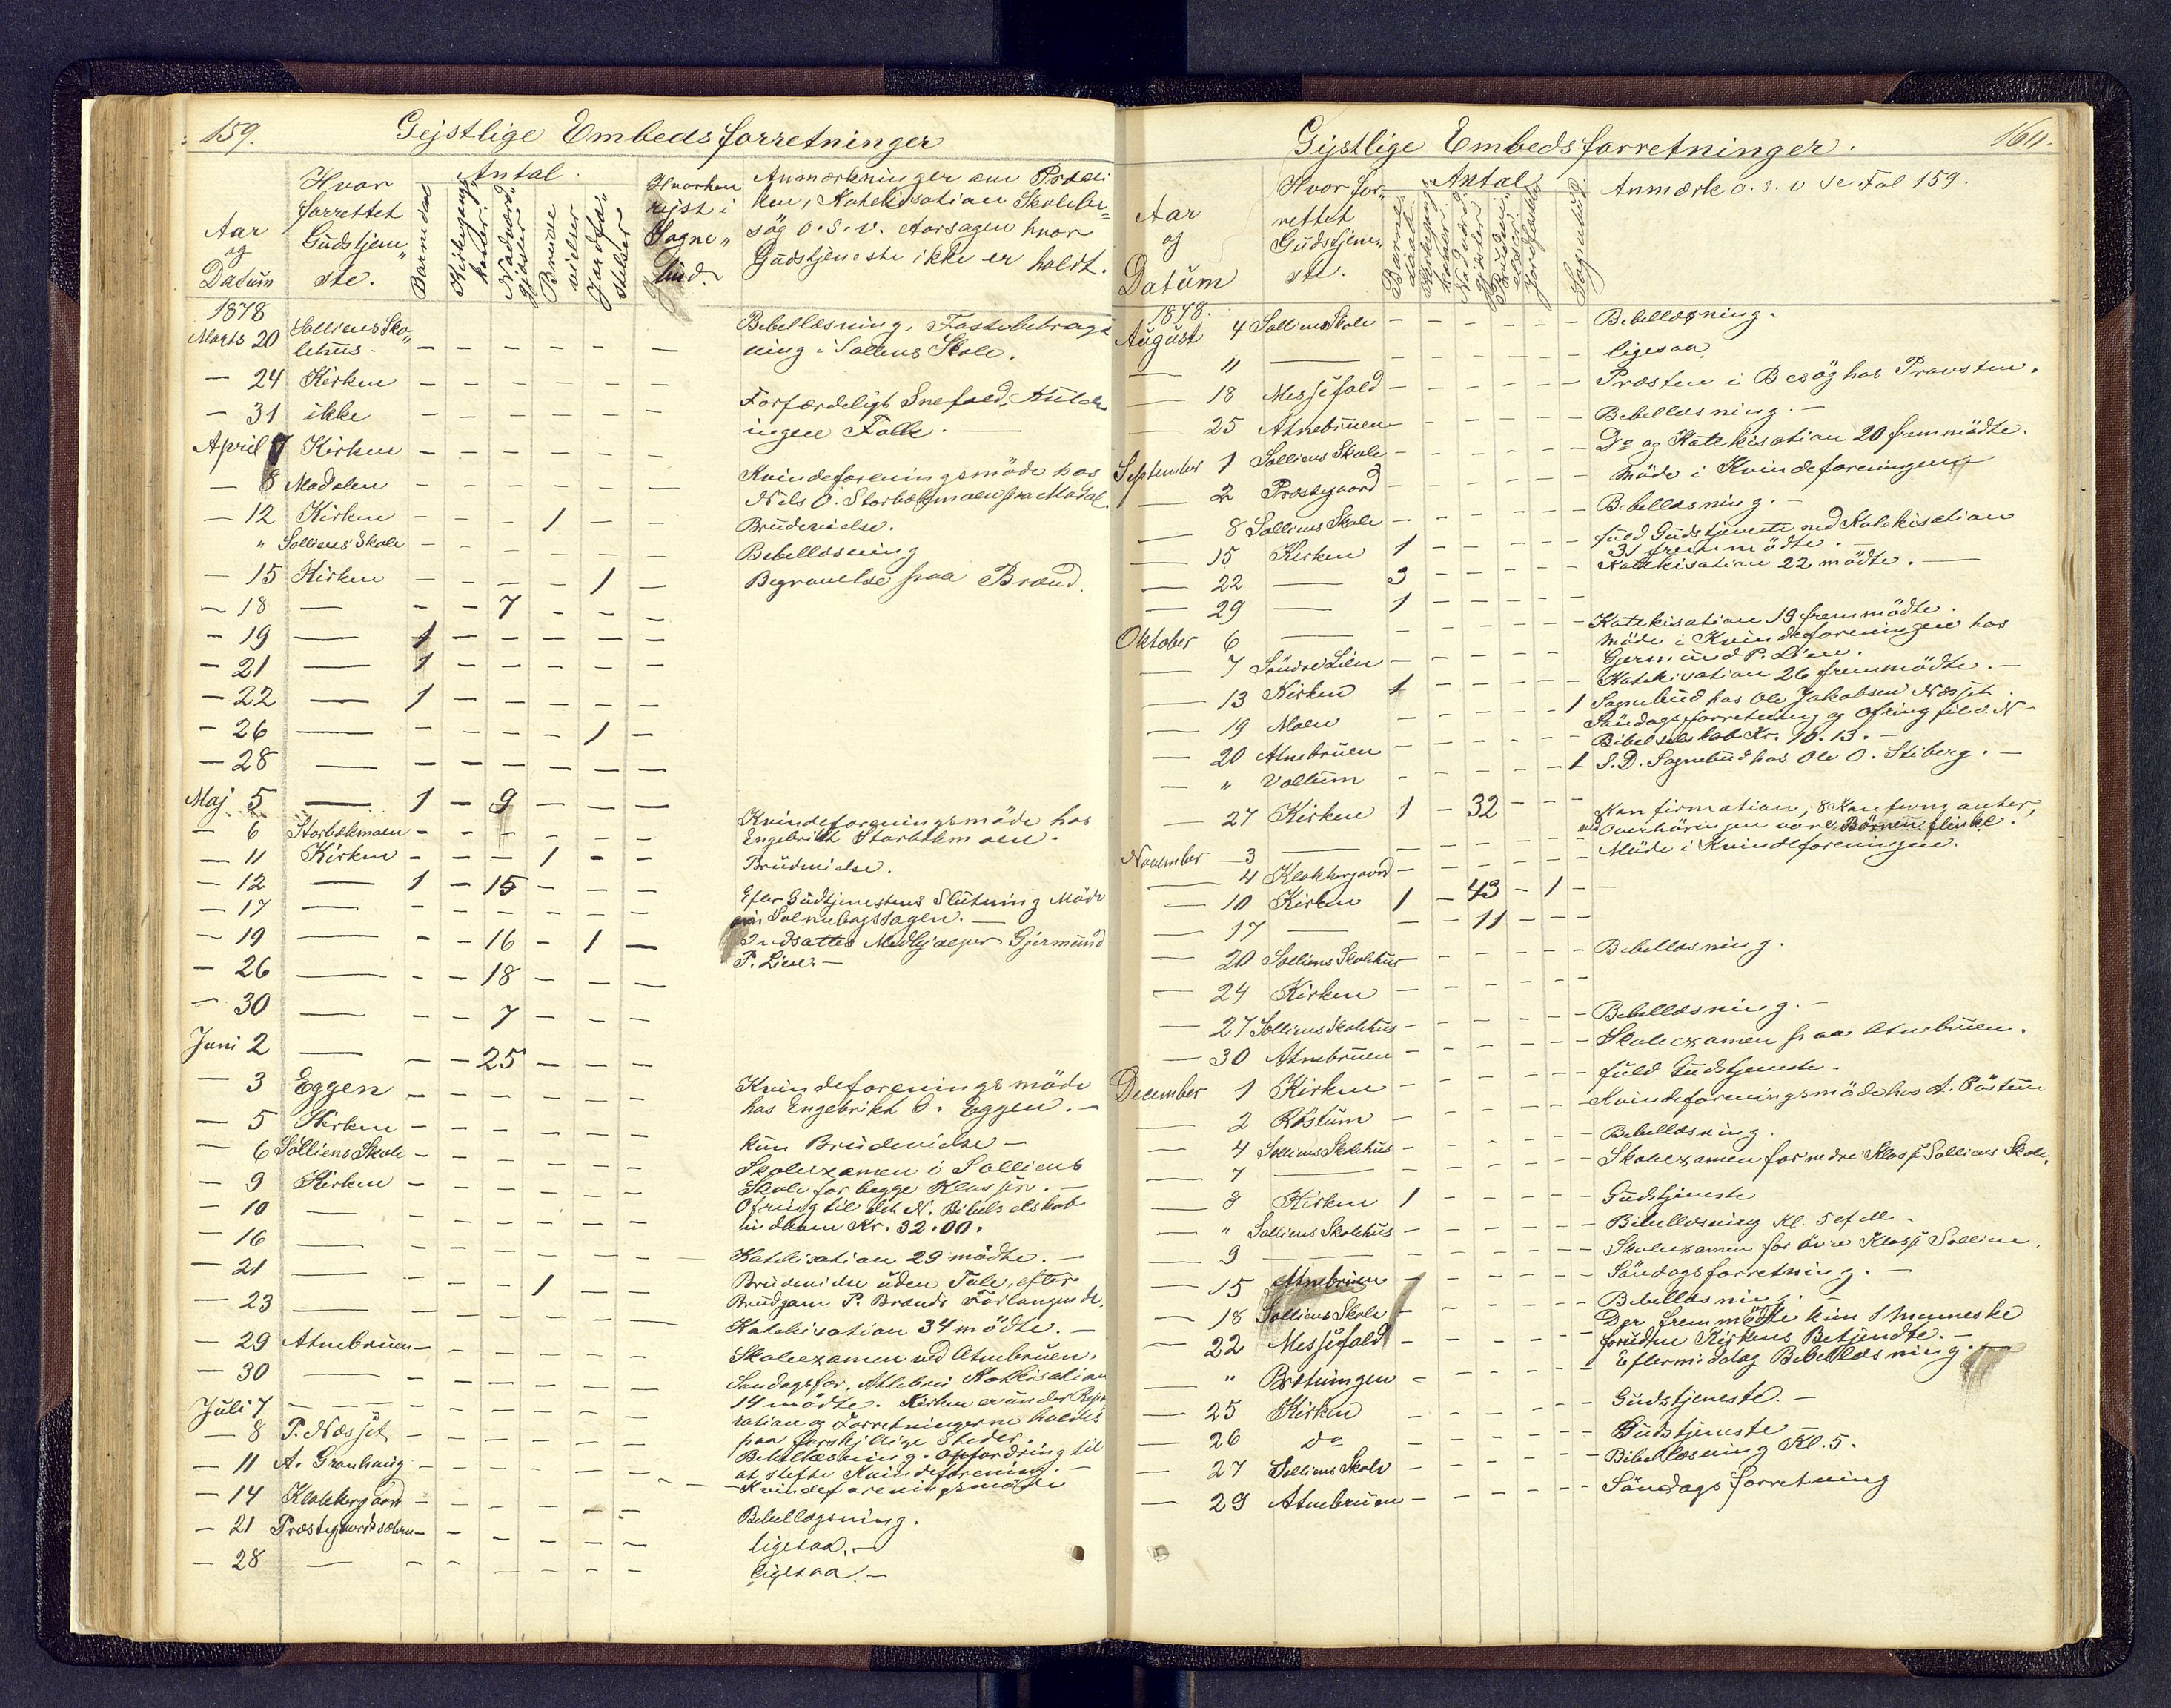 159. Gejstlige Embedsforretninger
Aar og Datum
Hvor forrettet Gudstjeneste.
Antal.
Barnedaab
Kirkegangskoner
Nadverdgjester
Brudevielser
Jordfæstelser
Sognebud.
Anmærkninger om Prædi
ken, Katekisation Skolebe=
søg o.s.v. Aarsagen hvor
Gudstjeneste ikke er holdt.
1878
Marts 20 Solliens Sko„
lehus. - - - - - - Bibellæsning, Fastebetragt
ning i Solliens Skole.
- 24 Kirken - - - - - -
- 31 ikke - - - - - - Forfærdeligt Snefald,
ingen Folk. —
April 7 Kirken - - - - - -
- 8 Madalen - - - - - - Kvindeforeningsmöde hos
Nils O. Storbækmoen fra Madal.
- 12 Kirken - - - 1 - - Brudevielse.
" Solliens Skole - - - - - - Bibellæsning
- 15 Kirken - - - - 1 - Begravelse paa Brænd.
- 18 — - - 7 - - -
- 19 — 1 - - - - -
- 21 — 1 - - - - -
- 22 — 1 - - - - -
- 26 — - - - - 1 -
- 28 — - - - - - -
Maj 5 — 1 - 9 - - -
- 6 Storbækmoen - - - - - - Kvindeforeningsmöde hos
Engebrikt Storbekmoen.
- 11 Kirken - - - 1 - - Brudevielse.
- 12 — 1 - 15 - - -
- 17 — - - - - - - Efter Gudtjenestens Slutning Möde
om Solnebagssagen. —
- 19 — - - 16 - 1 - Indsattes Medhjælper Gjermund
P. Lien. —
- 26 — - - 18 - - -
- 30 — - - 7 - - -
Juni 2 — - - 25 - - -
- 3 Eggen - - - - - - Kvindeforenings möde
hos Engebrikt O. Eggen. —
- 5 Kirken - - - - - - kun Brudevielse —
- 6 Solliens Skole - - - - - - Skoleexamen i Solliens
Skole for begge Klasser. —
- 9 Kirken - - - - - - Ofring til det N. Bibelselskab
indkom Kr. 32.00.
- 10 — - - - - - -
- 16 — - - - - - - Katekisation 29 mödte. —
- 21 — - - - 1 - - Brudevielse uden Tale, efter
Brudgom P. Brænds Forlangende.
- 23 — - - - - - - Katekisation 34 mödte. —
- 29 Atnebruen - - - - - - Skoleexamen ved Atnebruen.
- 30 — - - - - - - Søndagsfor. Attebru Katekisation
19 mödte. Kirken er under Repa
Juli 7 - - - - - - - ration og Forretningerne holdes
paa forskjellige Steder.
- 8 P. Næsset - - - - - - Bibellæsning. Opfordring til
at stifte Kvindeforening. —
- 11 A. Granhaug - - - - - - Kvindeforeningsmöde
- 14 Klokkergaard - - - - - - Bibellæsning.
- 21 Præstegaardssæteren - - - - - - ligesaa. —
- 28 — - - - - - - ligesaa. —
Gejstlige Embedsforretninger. 160.
Aar og Datum
Hvor forrettet Gudstjeneste.
Antal
Barnedaab
Kirkegangskoner
Nadverdgjester
Brudevielser
Jordfæstelser
Sognebud.
Anmærk o.s.v se Fol 159.
1878.
August 4 Solliens Skole - - - - - - Bibellæsning.
— 11 — - - - - - - ligesaa
— 18 Messefald - - - - - - Præsten i Besøg hos Provsten.
— 25 Atnebruen - - - - - - Bibellæsning. —
September 1 Solliens Skole - - - - - - Do og Katekisation 20 fremmödte.
— 2 Præstegaard - - - - - - Möde i Kvindeforeningen
— 8 Solliens Skole - - - - - - Bibellæsning. —
— 15 Kirken 1 - - - - - fuld Gudstjeneste med Katekisation
31 fremmödte. —
— 22 — 3 - - - - - Katekisation 22 mödte. —
— 29 — 1 - - - - -
Oktober 6 — - - - - - - Katekisation 19 fremmödte.
— 7 Söndre Lien - - - - - - Möde i Kvindeforeningen hos
Gjermund P. Lien.
— 13 Kirken 1 - - - - - Katekisation 26 fremmödte. —
— 19 Moen - - - - - 1 Sognebud hos Ole Jakobsen Næsset.
— 20 Atnebruen - - - - - - Söndagsforretning og Ofring til d. N
Bibelselskab Kr. 10.13. —
— " Vollum - - - - - 1 S.D. Sognebud hos Ole O. Stiberg. —
— 27 Kirken 1 - 32 - - - Konfirmation, 8 Konfirmanter,
ved Overhöringen vare Börnene flinke.
November 3 — - - - - - -
— 4 Klokkergaard - - - - - - Möde i Kvindeforeningen.
— 10 Kirken 1 - 43 - 1 -
— 17 — - - 11 - - -
— 20 Solliens Skolehus - - - - - - Bibellæsning.
— 24 Kirken - - - - - -
— 27 Solliens Skolehus - - - - - - Bibellæsning. —
— 30 Atnebruen - - - - - - Skoleexamen paa Atnebruen.
December 1 Kirken - - - - - - fuld Gudstjeneste.
— 2 Röstum - - - - - - Kvindeforeningsmöde hos A. Röstum
— 4 Solliens Skolehus - - - - - - Bibellæsning.
— 7 — - - - - - - Skoleexamen for nedre Klasse Solliens Skole.
— 8 Kirken 1 - - - - - Gudstjeneste
— " Solliens Skolehus - - - - - - Bibellæsning Kl. 5 efm.
— 9 — - - - - - - Skoleexamen for övre Klasse Sollien.
— 15 Atnebruen - - - - - - Söndagsforretning. —
— 18 Solliens Skole - - - - - - Bibellæsning.
— 22 Messefald - - - - - - Der fremmödte kun 1 Menneske
foruden Kirkens Betjendte. —
— " Brötningen - - - - - - Eftermiddag Bibellæsning.
— 25 Kirken - - - - - - Gudstjeneste. —
— 26 do - - - - - - Gudstjeneste
— 27 Solliens Skole - - - - - - Bibellæsning Kl. 5.
— 29 Atnebruen - - - - - - Söndagsforretning